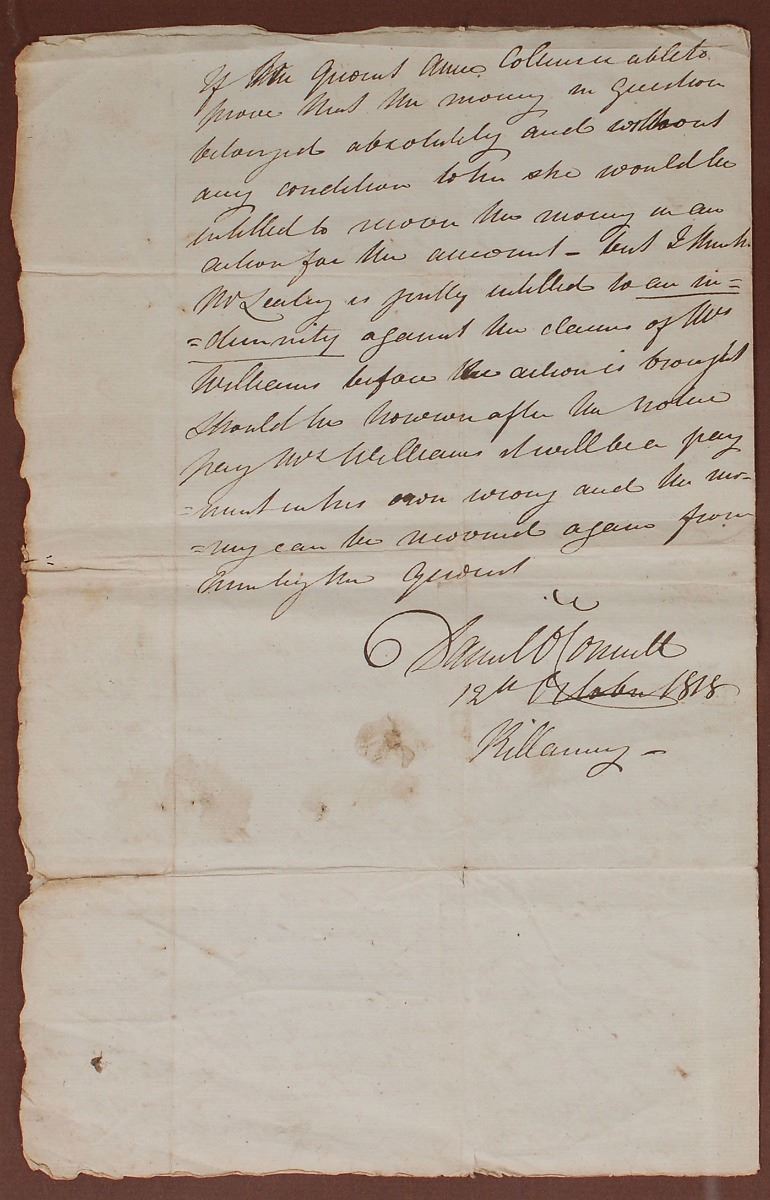 If the Querist Anne Collins is able to
prove that the money in Question
belonged absolutely and without
any condition to her she would be
intitled to recover the money in an
action for the amount – but I think
Mr Lealey is justly intitled to an in=
=demnity against the claims of Mrs
Williams before the action is brought
should he however after the notice
pay Mrs Williams it will be a pay
=ment in his own wrong and the mo=
=ney can be recovered again from
him by the Querist
Daniel O'Connell
12th October 1818
Killarney –